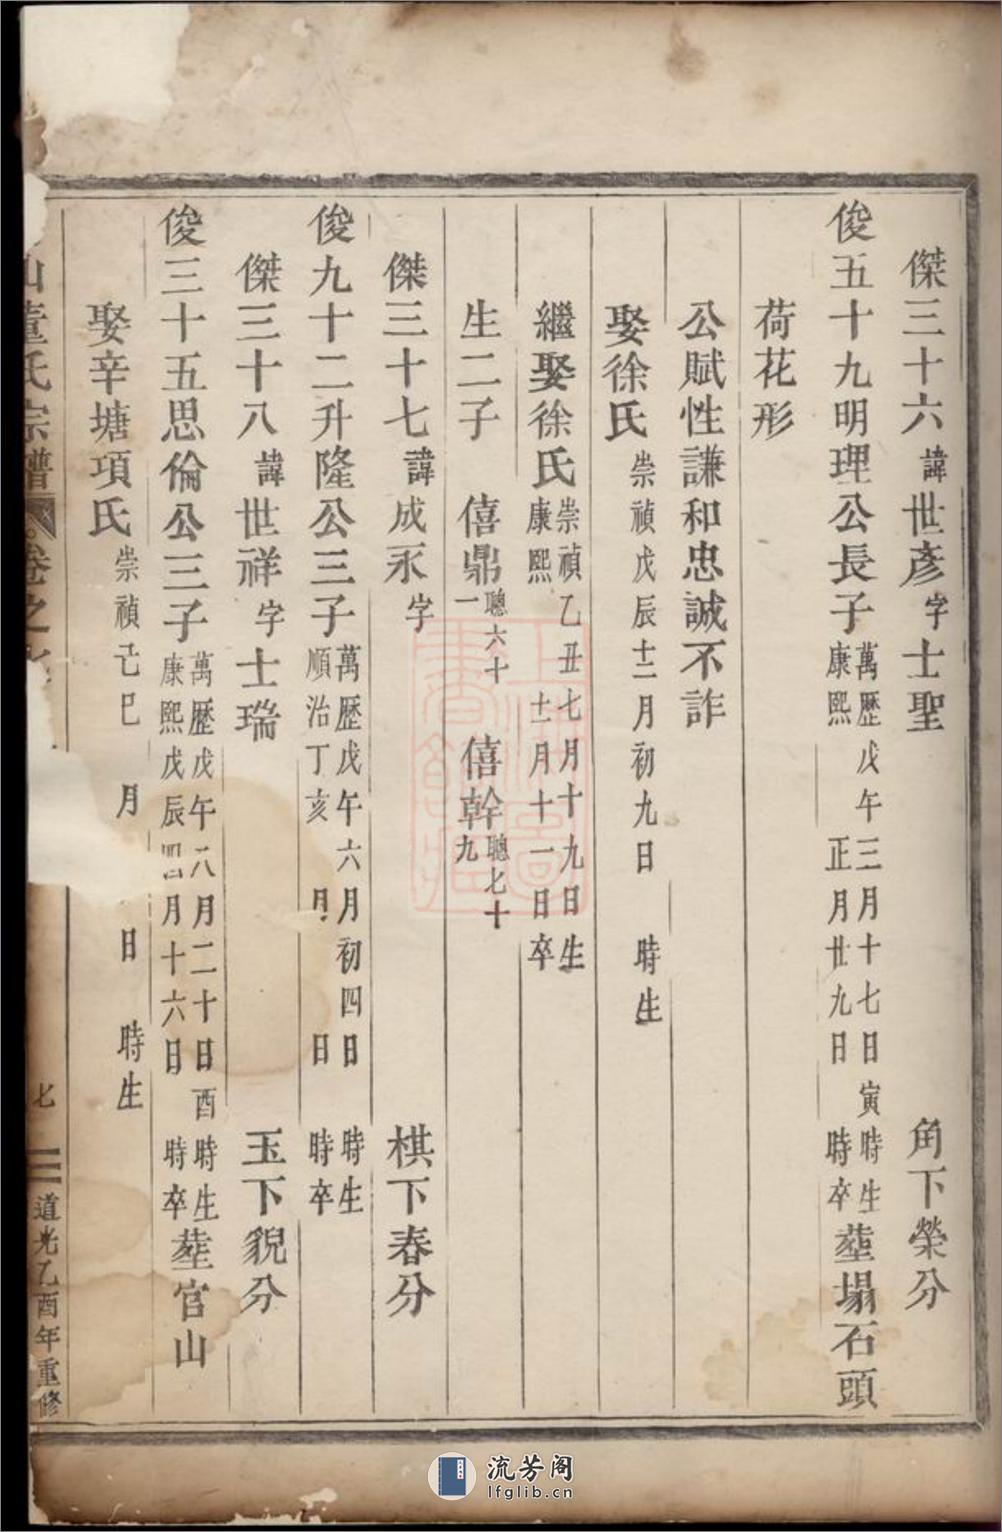 傑三十六諱世彥字士聖 角下榮分
俊五十九明理公長子萬歷戊午三月十七日寅時生康熙 正月廿九日 時卒塟塌石頭
荷花形
公賦性謙和忠誠不詐
娶徐氏崇禎戊辰十二月初九日 時生
繼娶徐氏崇禎乙丑七月十九日生康熙 十二月十一日卒
生二子 僖鼎聰六十一 僖幹聰七十九
傑三十七諱成永字 棋下春分
俊九十二升隆公三子萬歷戊午六月初四日 時生順治丁亥 月 日 時卒
傑三十八諱世祥字士瑞 玉下貌分
俊三十五思倫公三子萬歷戊午八月二十日酉時生康熙戊辰四月十六日 時卒塟官山
娶辛塘項氏崇禎己巳 月 日 時生
山董氏宗譜 卷之 七 道光乙酉年重修
上海圖書館藏
流芳阁
lfglib.cn